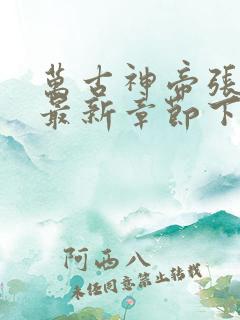 萬古神帝張
最新章節下
阿西八
未经同意禁止转载